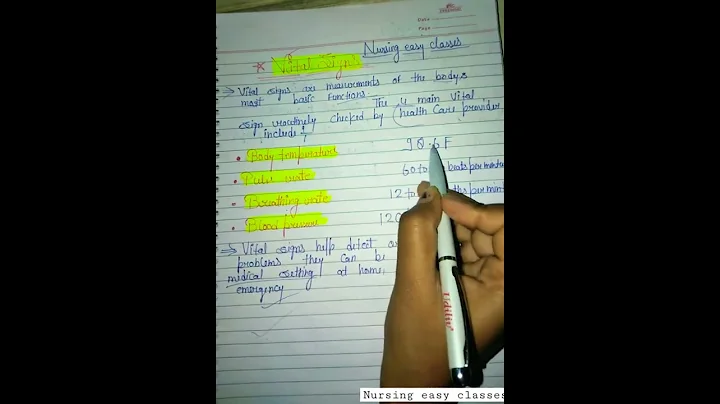 Date
Page
Nursing easy classes
* Vital sign's
⇒ Vital signs are measurments of the body's
most basic functions. The 4 main vital
sign routinely checked by health Care provider
include:-
• Body temperature 98.6 F
• Pulse rate 60 to beats per
• Breathing rate 12 to per
• Blood pressure 120
⇒ Vital signs help detect or
problems they can be
medical setting, at home,
emergency
Nursing easy classes